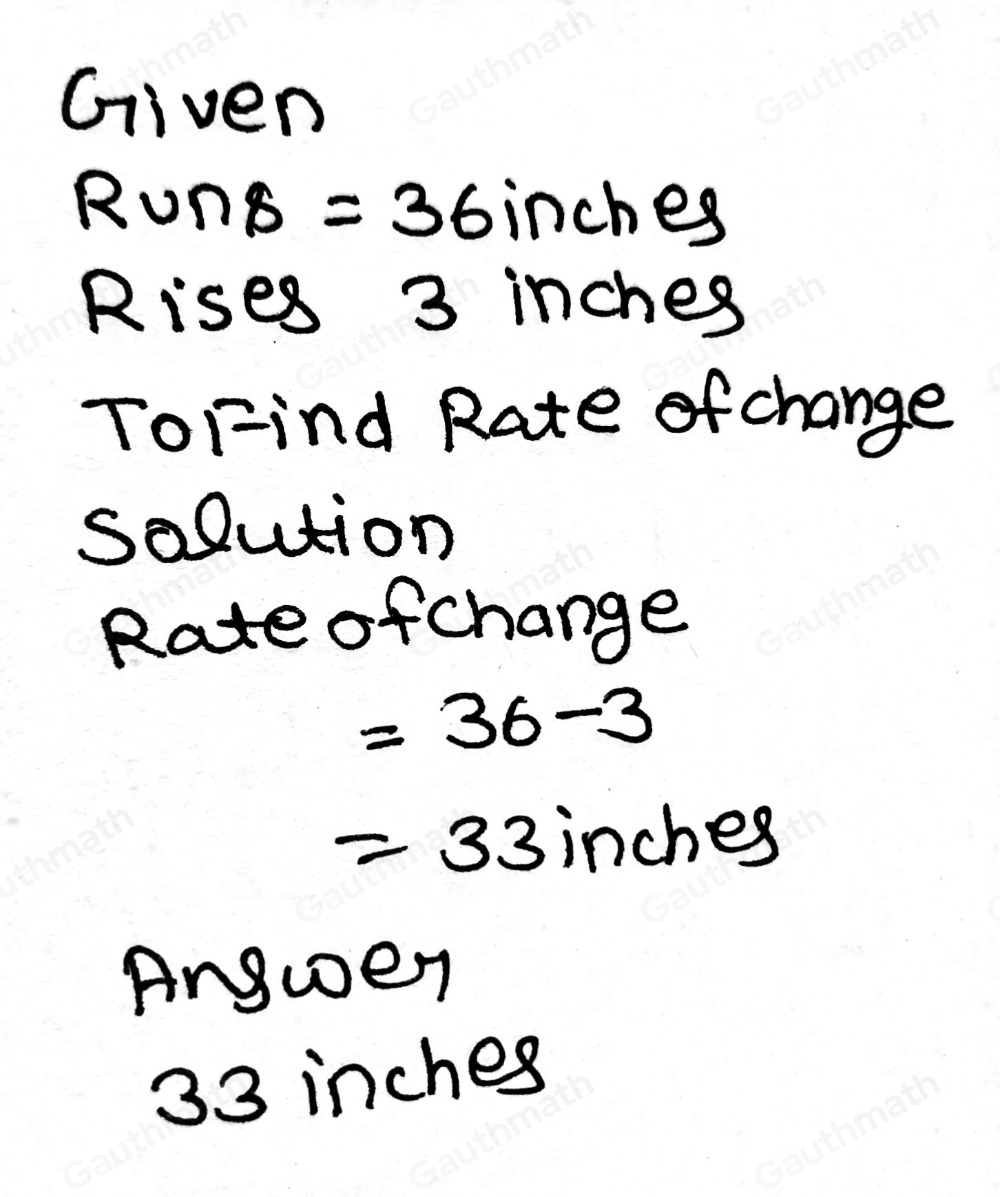 Given
Runs = 36 inches
Rises 3 inches
To Find Rate of change
Solution
Rate of change
= 36-3
= 33 inches
Answer
33 inches